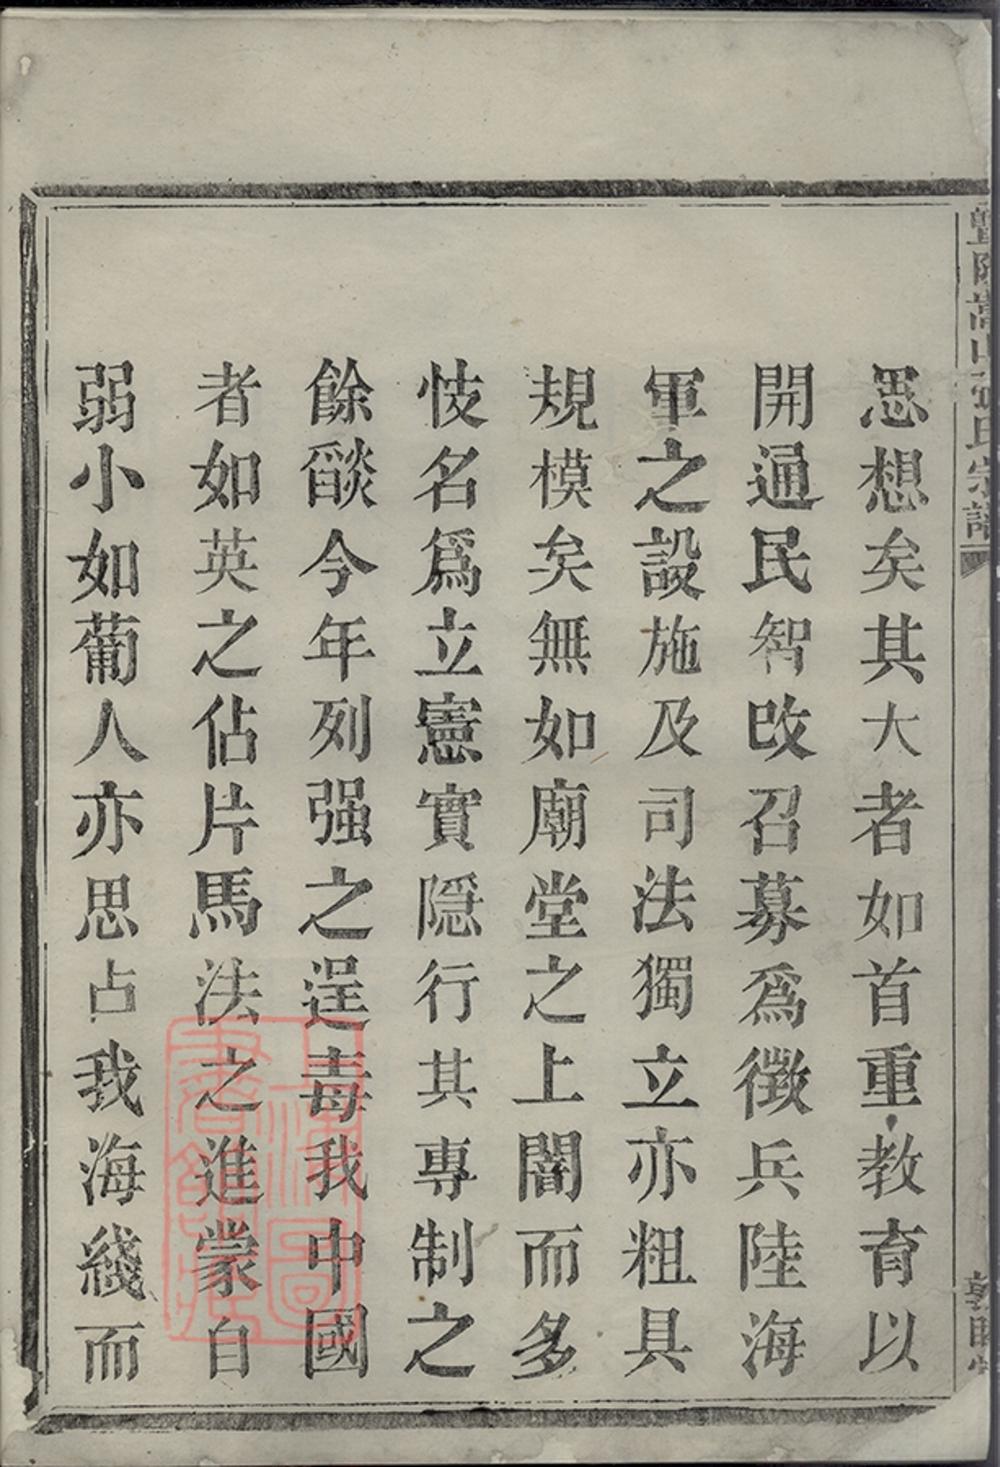 思想矣其大者如首重教育以
開通民智改召募爲徴兵陸海
軍之設施及司法獨立亦粗具
規模矣無如廟堂之上闇而多
忮名爲立憲實隱行其專制之
餘燄今年列强之逞毒我中國
者如英之佔片馬法之進蒙自
弱小如葡人亦思占我海綫而